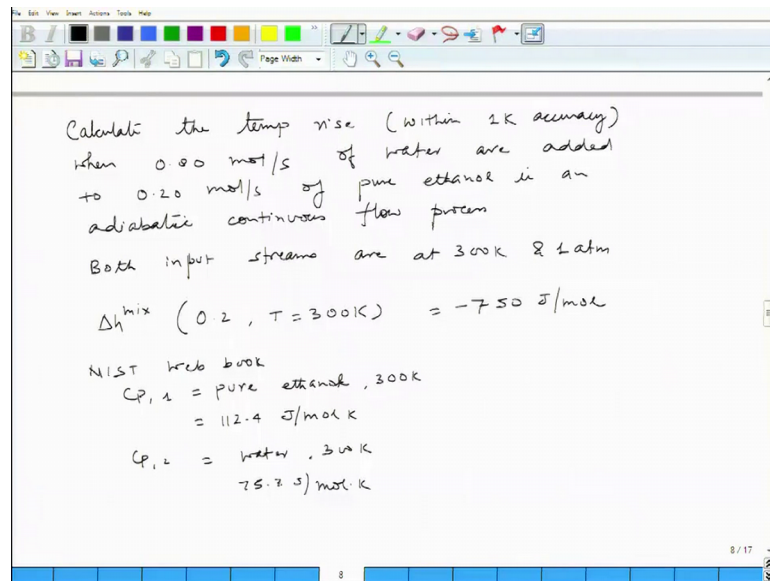 File Edit View Insert Actions Tools Help
B I
Page Width
Calculate the temp rise (within 1K accuracy)
when 0.80 mol/s of water are added
to 0.20 mol/s of pure ethanol in an
adiabatic continuous flow process
Both input streams are at 300K & 1 atm
Δh^mix (0.2, T = 300K) = -750 J/mol
NIST web book
Cp,1 = pure ethanol, 300K
= 112.4 J/mol K
Cp,2 = water, 300K
75.2 J/mol.K
8/17
8